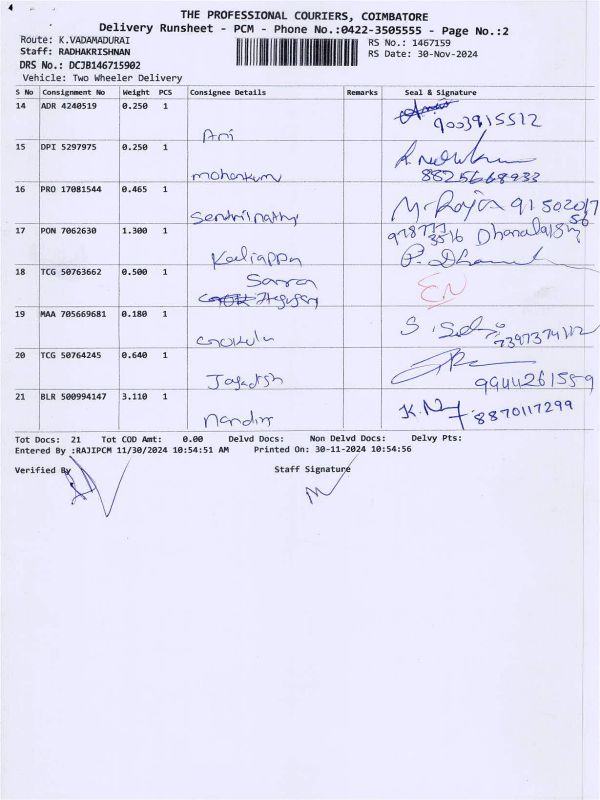 THE PROFESSIONAL COURIERS, COIMBATORE
Delivery Runsheet - PCM - Phone No.:0422-3505555 - Page No.:2
Route: K.VADAMADURAI
RS No.: 1467159
Staff: RADHAKRISHNAN
RS Date: 30-Nov-2024
DRS No.: DCJB146715902
Vehicle: Two Wheeler Delivery
S No Consignment No Weight PCS Consignee Details Remarks Seal & Signature
14 ADR 4240519 0.250 1
9003915512
Ani
15 DPI 5297975 0.250 1
mohankum 8825668933
16 PRO 17081544 0.465 1
M. Raja 91502017
56
17 PON 7062630 1.300 1
978777 3516
Kaliappa P. Dhana
18 TCG 50763662 0.500 1
EN
19 MAA 705669681 0.180 1
7397374112
Gokula
20 TCG 50764245 0.640 1
Jagadish 9944261559
21 BLR 500994147 3.110 1
K.N 8870117299
Nandin
Tot Docs: 21 Tot COD Amt: 0.00 Delvd Docs: Non Delvd Docs: Delvy Pts:
Entered By :RAJIPCM 11/30/2024 10:54:51 AM Printed On: 30-11-2024 10:54:56
Verified By Staff Signature